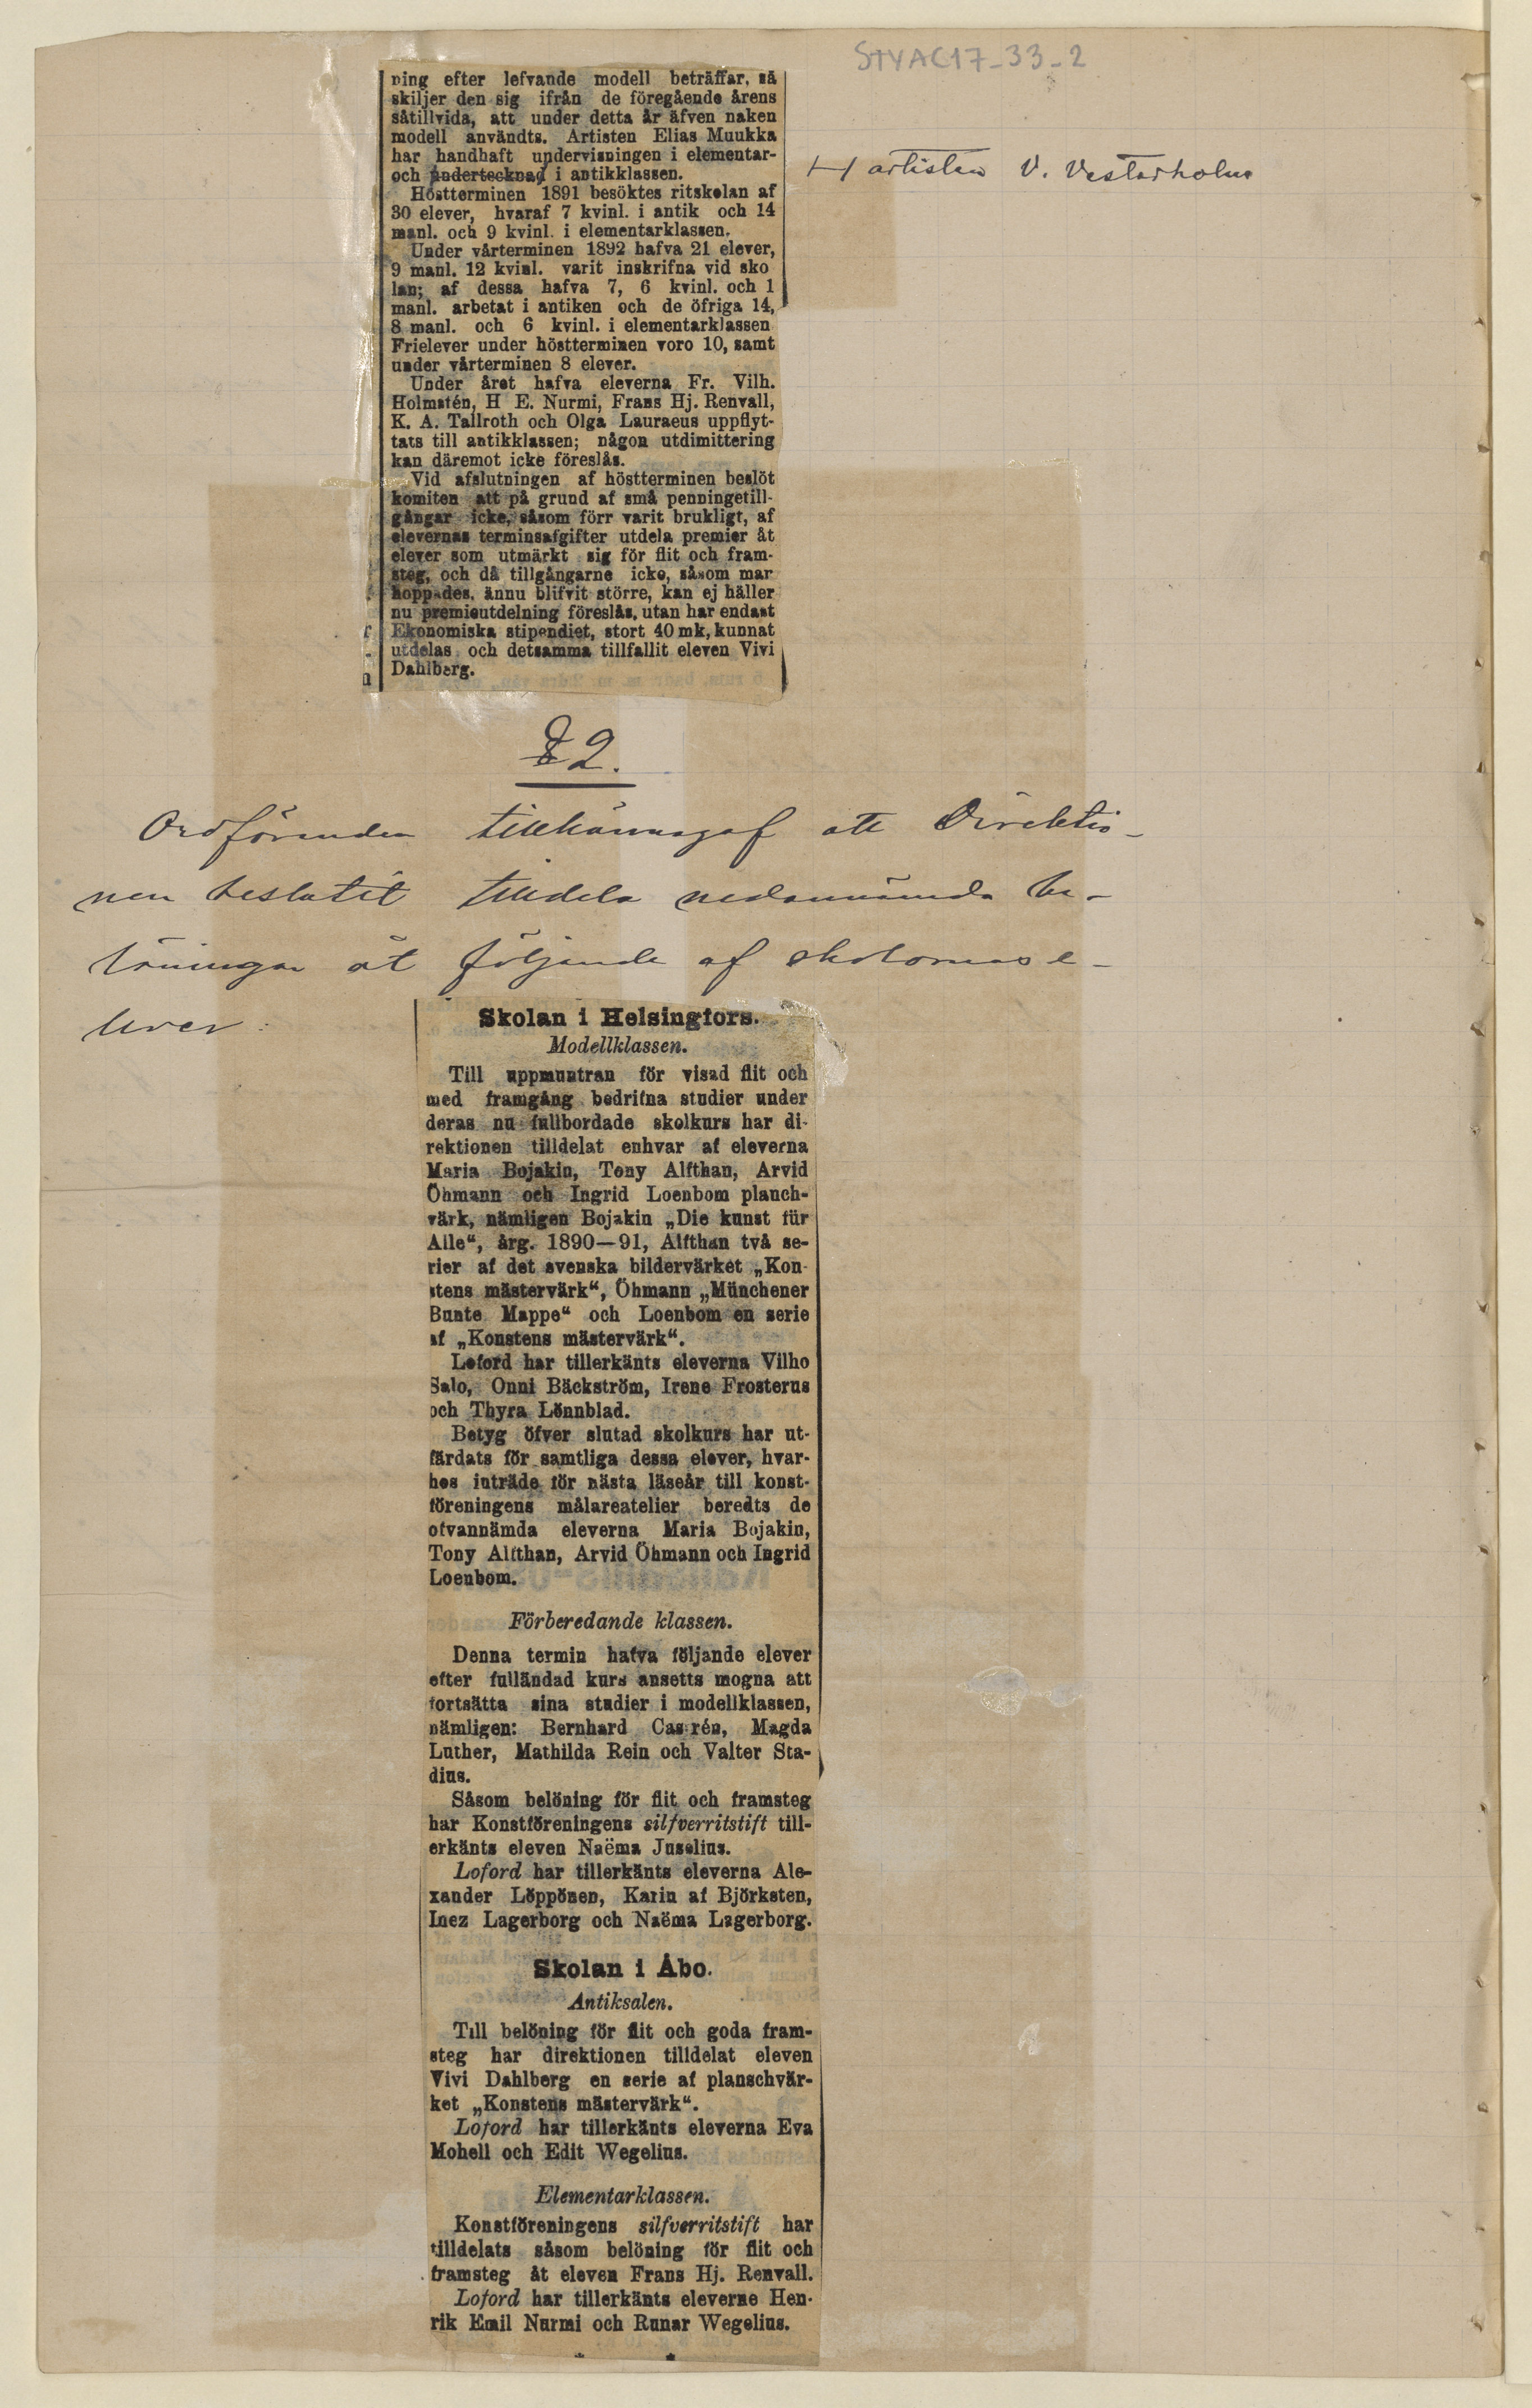 STYAC17-33-2
ning efter lefvande modell beträffar, så
skiljer den sig ifrån de föregående årens
såtillvida, att under detta år äfven naken
modell användts. Artisten Elias Muukka
har handhaft undervisningen i elementar-
och undertecknad i antikklassen.
artisten V. Vesterholm
Höstterminen 1891 besöktes ritskolan af
30 elever, hvaraf 7 kvinl. i antik och 14
manl. och 9 kvinl. i elementarklassen.
Under vårterminen 1892 hafva 21 elever,
9 manl. 12 kvinl. varit inskrifna vid sko
lan; af dessa hafva 7, 6 kvinl. och 1
manl. arbetat i antiken och de öfriga 14,
8 manl. och 6 kvinl. i elementarklassen
Frielever under höstterminen voro 10, samt
under vårterminen 8 elever.
Under året hafva eleverna Fr. Vilh.
Holmstén, H E. Nurmi, Frans Hj. Renvall,
K. A. Tallroth och Olga Lauraeus uppflyt-
tats till antikklassen; någon utdimittering
kan däremot icke föreslås.
Vid afslutningen af höstterminen beslöt
komiten att på grund af små penningetill-
gångar icke, såsom förr varit brukligt, af
elevernas terminsafgifter utdela premier åt
elever som utmärkt sig för flit och fram-
steg, och då tillgångarne icke, såsom mar
hoppades, ännu blifvit större, kan ej häller
nu premieutdelning föreslås, utan har endast
Ekonomiska stipendiet, stort 40 mk, kunnat
utdelas och detsamma tillfallit eleven Vivi
Dahlberg.
§ 2.
Ordföranden tillkännagaf att Direktio-
nen beslutit tilldela nedannämnda be-
löningar åt följande af skolornas e-
lever:
Skolan i Helsingfors.
Modellklassen.
Till uppmuntran för visad flit och
med framgång bedrifna studier under
deras nu fullbordade skolkurs har di-
rektionen tilldelat enhvar af eleverna
Maria Bojakin, Tony Alfthan, Arvid
Öhmann och Ingrid Loenbom planch-
värk, nämligen Bojakin „Die kunst für
Alle“, årg. 1890—91, Alfthan två se-
rier af det svenska bildervärket „Kon-
stens mästervärk“, Öhmann „Münchener
Bunte Mappe“ och Loenbom en serie
af „Konstens mästervärk“.
Loford har tillerkänts eleverna Vilho
Salo, Onni Bäckström, Irene Frosterus
och Thyra Lönnblad.
Betyg öfver slutad skolkurs har ut-
färdats för samtliga dessa elever, hvar-
hos inträde för nästa läseår till konst-
föreningens målareatelier beredts de
ofvannämda eleverna Maria Bojakin,
Tony Alfthan, Arvid Öhmann och Ingrid
Loenbom.
Förberedande klassen.
Denna termin hafva följande elever
efter fulländad kurs ansetts mogna att
fortsätta sina studier i modellklassen,
nämligen: Bernhard Castrén, Magda
Luther, Mathilda Rein och Valter Sta-
dius.
Såsom belöning för flit och framsteg
har Konstföreningens silfverritstift till-
erkänts eleven Naëma Juselius.
Loford har tillerkänts eleverna Ale-
xander Löppönen, Karin af Björksten,
Inez Lagerborg och Naëma Lagerborg.
Skolan i Åbo.
Antiksalen.
Till belöning för flit och goda fram-
steg har direktionen tilldelat eleven
Vivi Dahlberg en serie af planschvär-
ket „Konstens mästervärk“.
Loford har tillerkänts eleverna Eva
Mohell och Edit Wegelius.
Elementarklassen.
Konstföreningens silfverritstift har
tilldelats såsom belöning för flit och
framsteg åt eleven Frans Hj. Renvall.
Loford har tillerkänts eleverne Hen-
rik Emil Nurmi och Runar Wegelius.